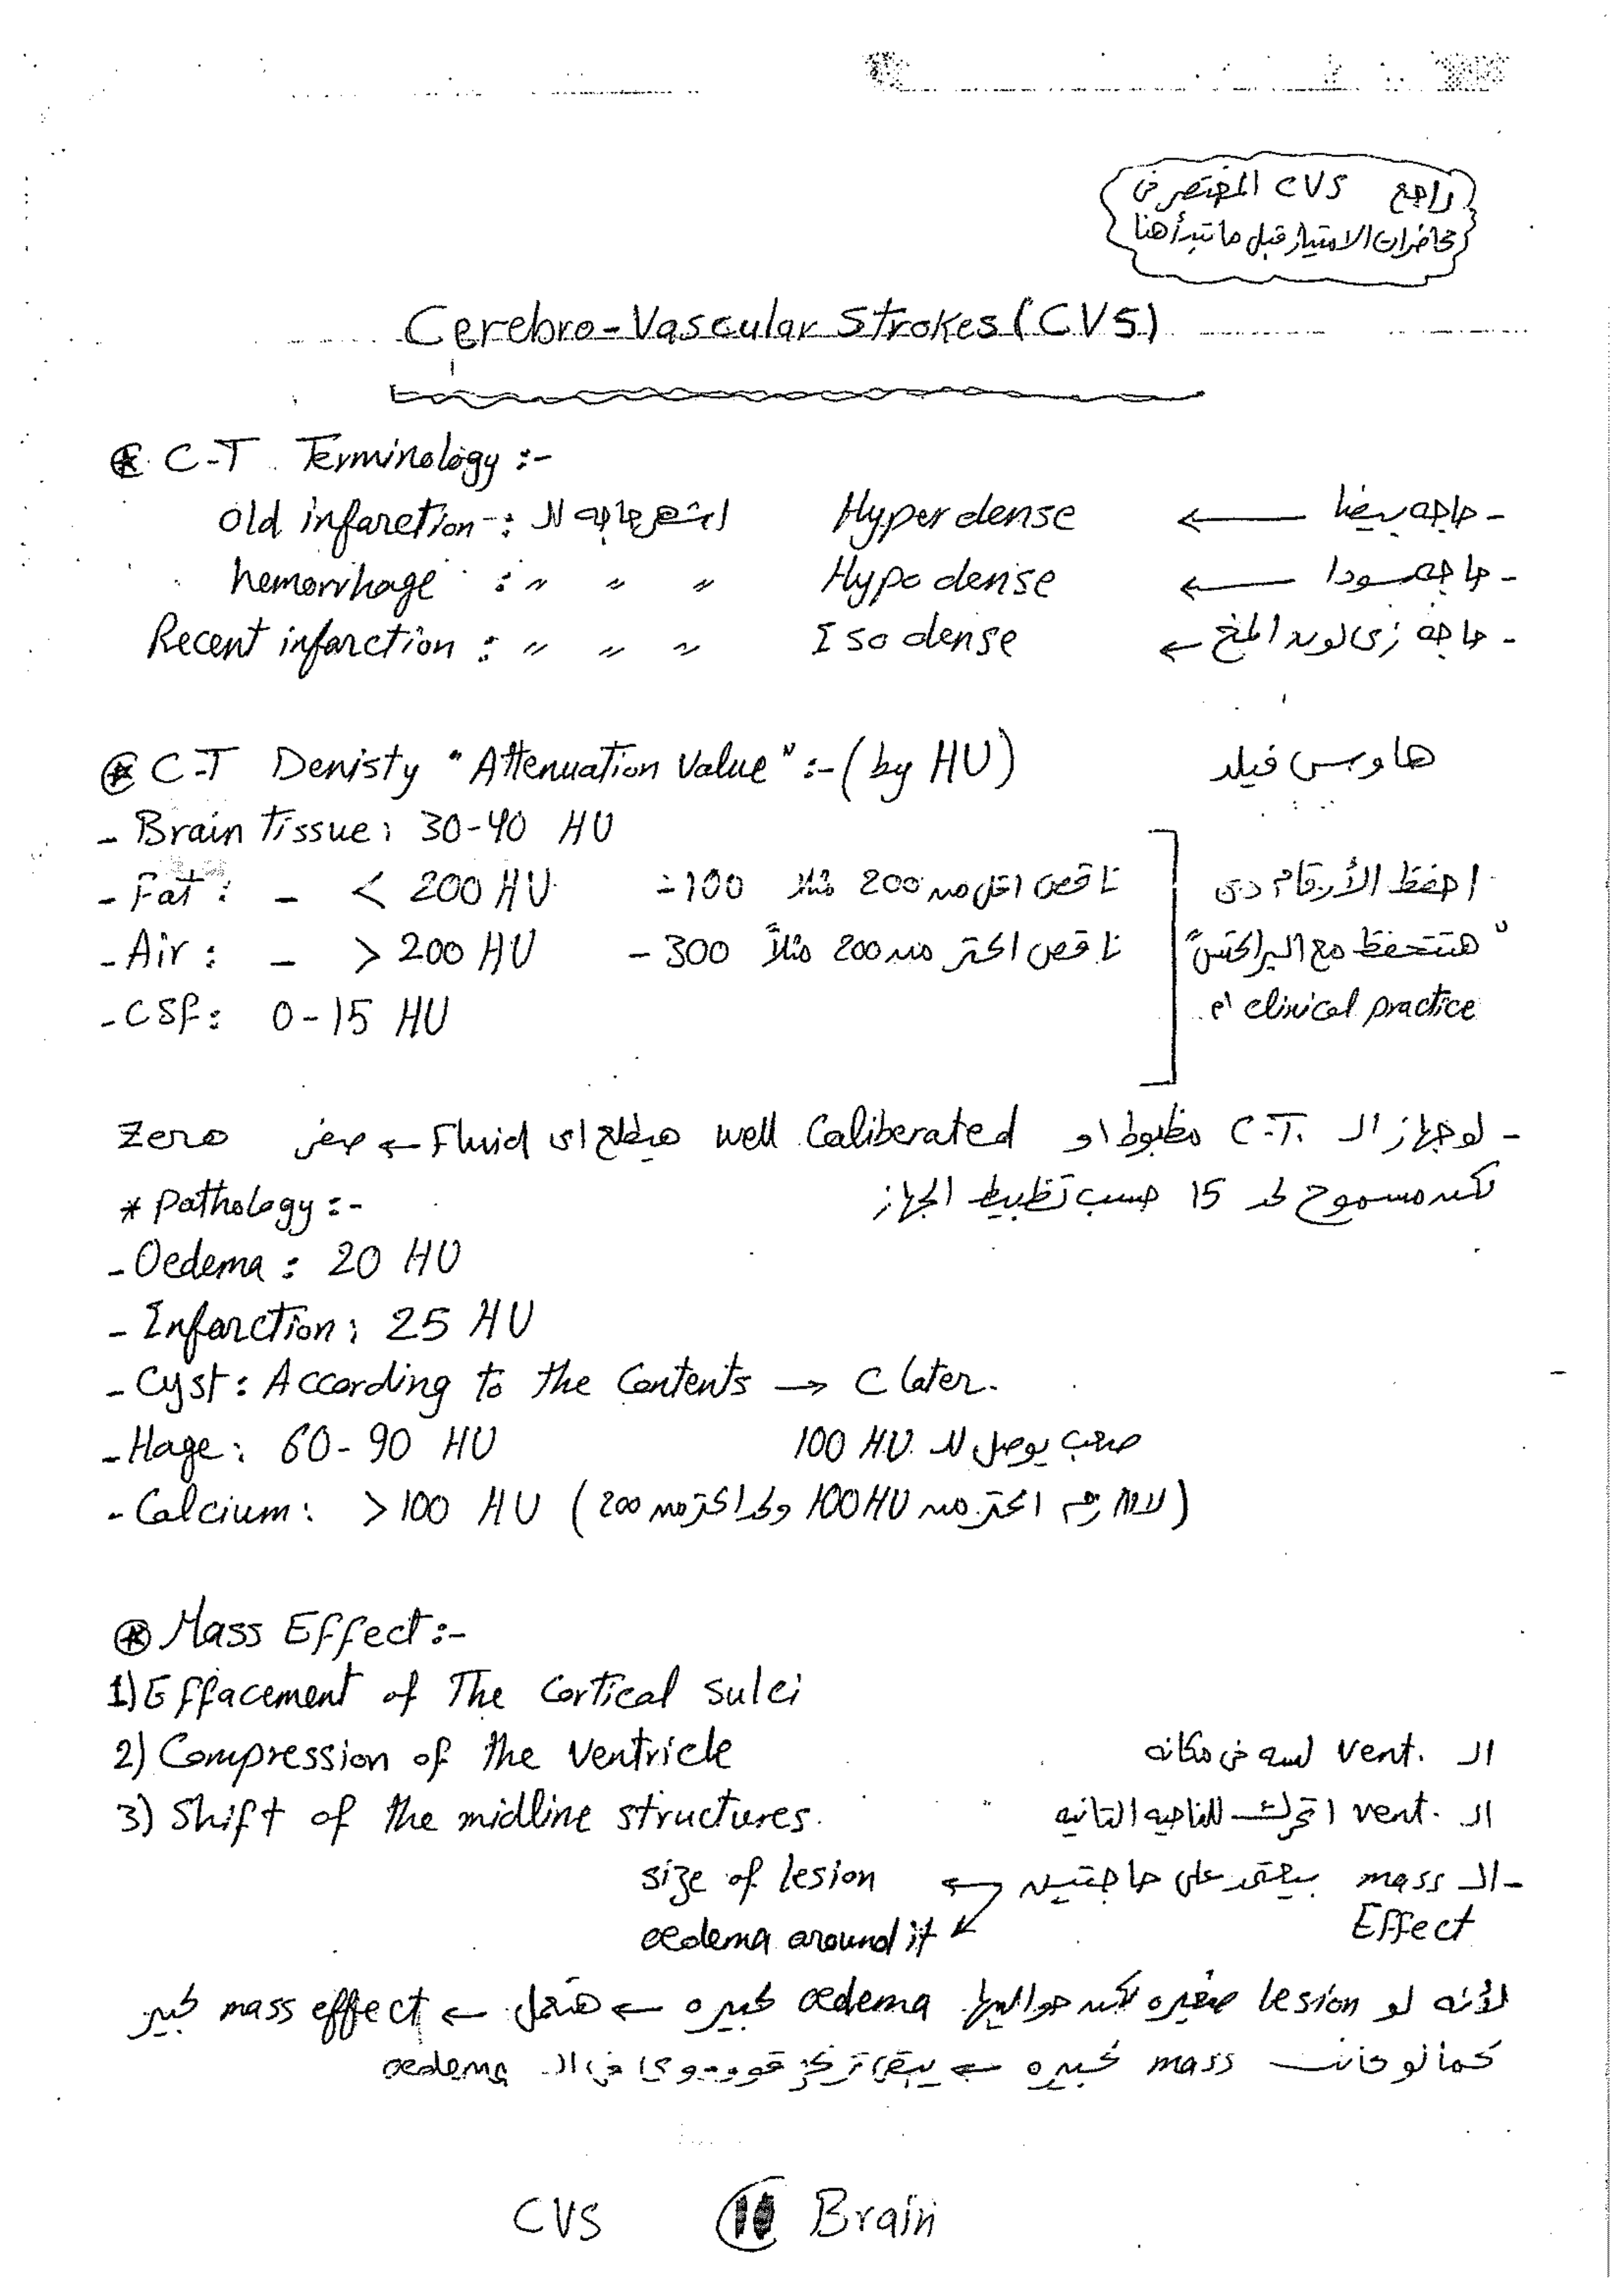 راجع CVS المختصر في
محاضرات الامتياز قبل ما تبدأ هنا
Cerebro-Vascular Strokes (CVS)
C-T Terminology :-
- حاجه بيضا ← Hyperdense
old infarction :
- حاجه سودا ← Hypodense
hemorrhage : " " "
- حاجة زى لون المخ ← Isodense
Recent infarction : " " "
C-T Denisty "Attenuation Value" :- (by HU) هاونس فيلد
- Brain tissue: 30-40 HU
- Fat: - < 200 HU ناقص اقل من 200 مثلا -100
- Air: - > 200 HU ناقص اكتر من 200 مثلاً -300
- CSF: 0-15 HU
احفظ الأرقام دى
"هتتحفظ مع البراكتس"
clinical practice
- لو جهاز الـ C.T. مظبوط او well Caliberated هيطلع اى Fluid ← صفر Zero
لكن مسموح لحد 15 حسب تظبيط الجهاز
* Pathology :-
- Oedema : 20 HU
- Infarction: 25 HU
- Cyst: According to the Contents → C later.
- Hage: 60-90 HU صعب يوصل لـ 100 HU
- Calcium: >100 HU (لازم اكتر من 100 HU و اكتر من 200)
Mass Effect :-
1) Effacement of The Cortical sulci
2) Compression of the Ventricle الـ vent. لسه فى مكانه
3) Shift of the midline structures. الـ vent. اتحرك للناحيه التانيه
- الـ mass Effect بيعتمد على حاجتين ← size of lesion
oedema around it
لأنه لو lesion صغيره لكن حواليها oedema كبيره ← هتعمل ← mass effect كبير
كما لو كانت mass كبيره ← فى الـ oedema
CVS 11 Brain